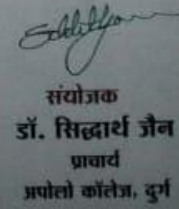 संयोजक
डॉ. सिद्धार्थ जैन
प्राचार्य
अपोलो कॉलेज, दुर्ग